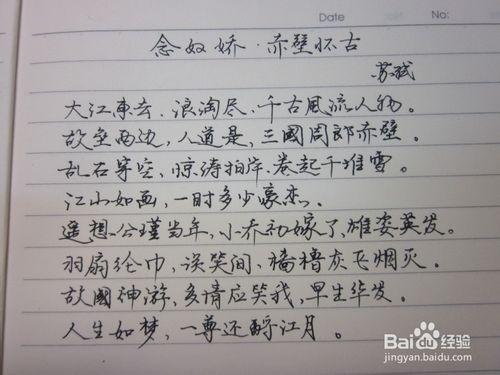 Date No:
念奴娇·赤壁怀古
苏轼
大江東去，浪淘尽，千古風流人物。
故垒西边，人道是，三國周郎赤壁。
乱石穿空，惊涛拍岸，卷起千堆雪。
江山如画，一时多少豪杰。
遥想公瑾当年，小乔初嫁了，雄姿英发。
羽扇纶巾，谈笑间，樯橹灰飞烟灭。
故國神游，多情应笑我，早生华发。
人生如梦，一尊还酹江月。
Baidu 经验
jingyan.baidu.com